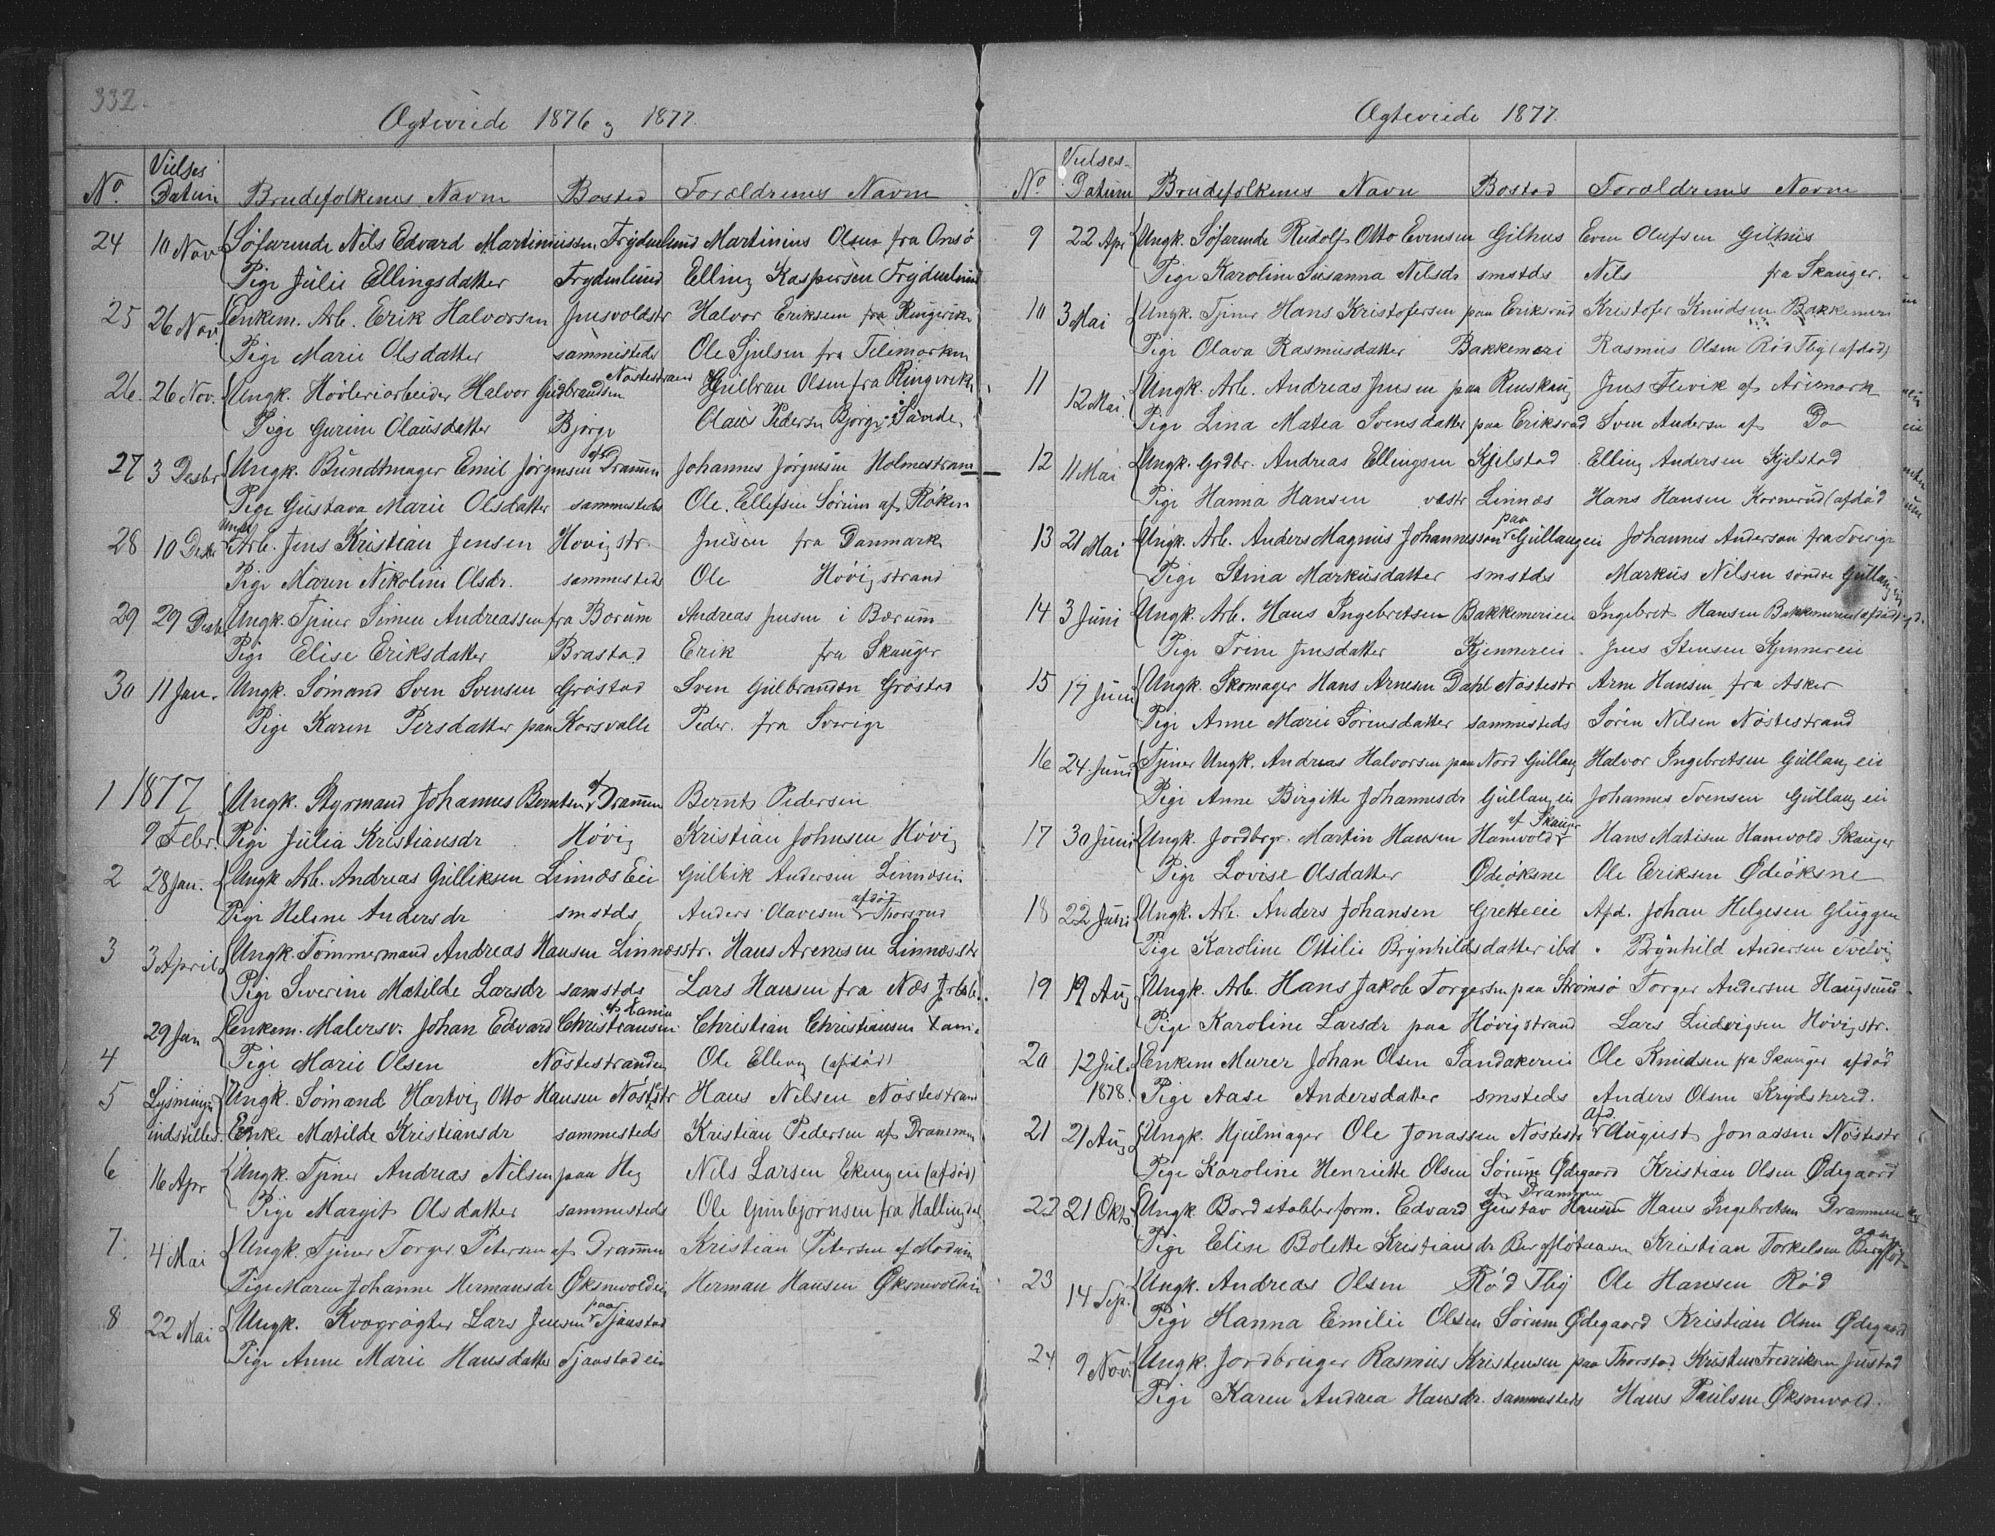 332.
Ægteviede 1876 og 1877.
No. Vielses Datum Brudefolkenes Navn Bosted Forældrenes Navn
24 10 Nov Søfarende Nils Edvard Martiniussen Frydenlund Martinius Olsen fra Onsø
Pige Julie Ellingsdatter Frydenlund Elling Kaspersen Frydenlund
25 26 Nov. Enkem. Arb. Erik Halvorsen Halvor Eriksen fra Ringerike
Pige Marie Olsdatter sammesteds Ole fra Telemarken
26. 26 Nov. Ungk. Høvleriarbeider Halvor Gulbrandsen Nøstestrand Gulbran Olsen fra Ringerike
Pige Gurine Olausdatter Bjørge Olaus Pedersen Bjørge i Sande.
27 3 Desbr Ungk. Bundtmager Emil Jørgensen af Drammen Johannes Jørgensen Holmestrand
Pige Gustava Marie Olsdatter sammesteds Ole Ellefsen Sørum af Røken
28 10 Desbr Ungk. Arb. Jens Kristian Jensen Hovigstr. Jensen fra Danmark
Pige Maren Nikoline Olsdr. sammesteds Ole Høvigstrand
29 29 Desbr Ungk. Tjener Simen Andreassen fra Bærum Andreas Jensen i Bærum
Pige Elise Eriksdatter Brastad Erik fra Skauger
30 11 Jan. Ungk. Sømand Sven Svensen Grøstad Sven Gulbrandsn Grøstad
Pige Karen Persdatter paa Korsvalle Peder fra Sverige
1 1877 Ungk. Styrmand Johannes Berntsen af Drammen Bernts Pedersen
9 Febr. Pige Julia Kristiansdr Høvig Kristian Johnsen Høvig
2 28 Jan. Ungk Arb. Andreas Gulliksen Linnæs Eie Gulbik Andersen Linnæseie
Pige Helene Andersdr smstds Anders Olavesen afdød Thorsrud
3 3 April Ungk. Tømmermand Andreas Hansen Linnæsstr. Hans Arenesen Linnæsstr
Pige Severine Matilde Larsdr samstds Lars Hansen fra Næs
4 29 Jan Enkem. Malersv. Johan Edvard Christiansen Christian Christiansen
Pige Marie Olsen Nøstestranden Ole Elleng (afdød)
5 Lysningen Ungk. Sømand Hartvig Otto Hansen Nøststr Hans Nilsen Nøstestrand
indstilled. Enke Matilde Kristiansdr sammesteds Kristian Pedersen af Drammen
6 16 Apr Ungk. Tjener Andreas Nilsen paa Heg Nils Larsen Ekengeie (afdød)
Pige Margit Olsdatter sammesteds Ole Gunbjørnsen fra Hallingdal
7. 4 Mai Ungk. Tjener Torger Petersen af Drammen Kristian Petersen af Modum
Pige Maren Johanne Hermansdr Øksnevoldeie Herman Hansen Øksnevoldeie
8 22 Mai Ungk. Kvægrøgter Lars Jensen paa Tjaastad
Pige Anne Marie Hansdatter Sjaastadeie
Ægteviede 1877.
No. Vielses- Datum Brudefolkenes Navn Bostad Forældrenes Navn
9 22 Apr Ungk. Søfarende Rudolf Otto Evensen Gilhus Even Olufsen Gilhus
Pige Karoline Susanna Nilsdr smstds Nils fra Skauger.
10 3 Mai Ungk. Tjener Hans Kristofersen paa Eriksrud Kristofer Knudsen Bakkemeri
Pige Olava Rasmusdatter Bakkemeri Rasmus Olsen Rød Tby (afdød)
11 12 Mai. Ungk. Arb. Andreas Jensen paa Renskaug Jens Flevik af Aremark
Pige Lina Matea Svensdatter paa Eriksrud Sven Andersn af Do
12 11 Mai Ungk. Grdbr. Andreas Ellingsen Kjelstad Elling Andersen Kjelstad
Pige Hanna Hansen vestr Linnæs Hans Hansen Kornerud (afdød
13 21 Mai Ungk. Arb. Anders Magnus Johannesson paa Gullaugeie Johannes Anderson fra Sverige
Pige Stina Markusdatter smstds Markus Nilsen søndre Gullaug eie
14 3 Juni Ungk. Arb. Hans Ingebretsen Bakkemerieie Ingebret Hansen Bakkemerieie (afdød)
Pige Trine Jensdatter Kjennereie. Jens Stensen Kjennereie
15 17 Juni Ungk. Skomager Hans Arnesen Dahl Nøstestr Arne Hansen fra Asker
Pige Anne Marie Sørensdatter sammesteds Søren Nilsen Nøstestrand
16 24. Juni Tjener Ungk. Andreas Halvorsen paa Nord Gullaug Halvor Ingebretsen Gullaug eie
Pige Anne Birgitte Johannesdr Gullaug eie Johannes Svensen Gullaug eie
17 30 Juni Ungk. Jordbrgr. Martin Hansen Hamvold af Skauger Hans Matisen Hamvold Skauger
Pige Lovise Olsdatter Ødeøksne Ole Eriksen Ødeøksne
18 22 Juni Ungk. Arb. Anders Johansen Gretteeie Afd. Johan Helgesen Gluggen
Pige Karoline Ottilie Brynhildsdatter ibd. Brynhild Andersen Svelvig
19 19 Aug Ungk. Arb. Hans Jakob Torgersen paa Strømsø Torger Andersen Haugsund
Pige Karoline Larsdr paa Høvigstrand Lars Ludvigsen Høvigstr.
20 12 Juli Enkem Murer Johan Olsen Sandakereie Ole Knudsen fra Skauger afdød
1878. Pige Aase Andersdatter smsteds Anders Olsen Krydsherd.
21 21 Aug Ungk. Hjulmager Ole Jonassen Nøstestr Afd. August Jonassen Nøstestr
Pige Karoline Henriette Olsen Sørum Ødegaard Kristian Olsen Ødegaard
22 21 Okt. Ungk. Bordstabberform. Edvard Gustav Hansen af Drammen Hans Ingebretsen Drammen
Pige Elise Bolette Kristiansdr Bergfløtaasen Kristian Torkelsen Bergfløt aasen
23 14 Sep. Ungk. Andreas Olsen Rød Tby Ole Hansen Rød
Pige Hanna Emilie Olsen Sørum Ødegaard Kristian Olsn Ødegaard
24 9 Nov. Ungk. Jordbruger Rasmus Kristensen paa Thorstad Kristen Fredriksen Justad
Pige Karen Andrea Hansdr. sammesteds Hans Paulsen Øksnevold.